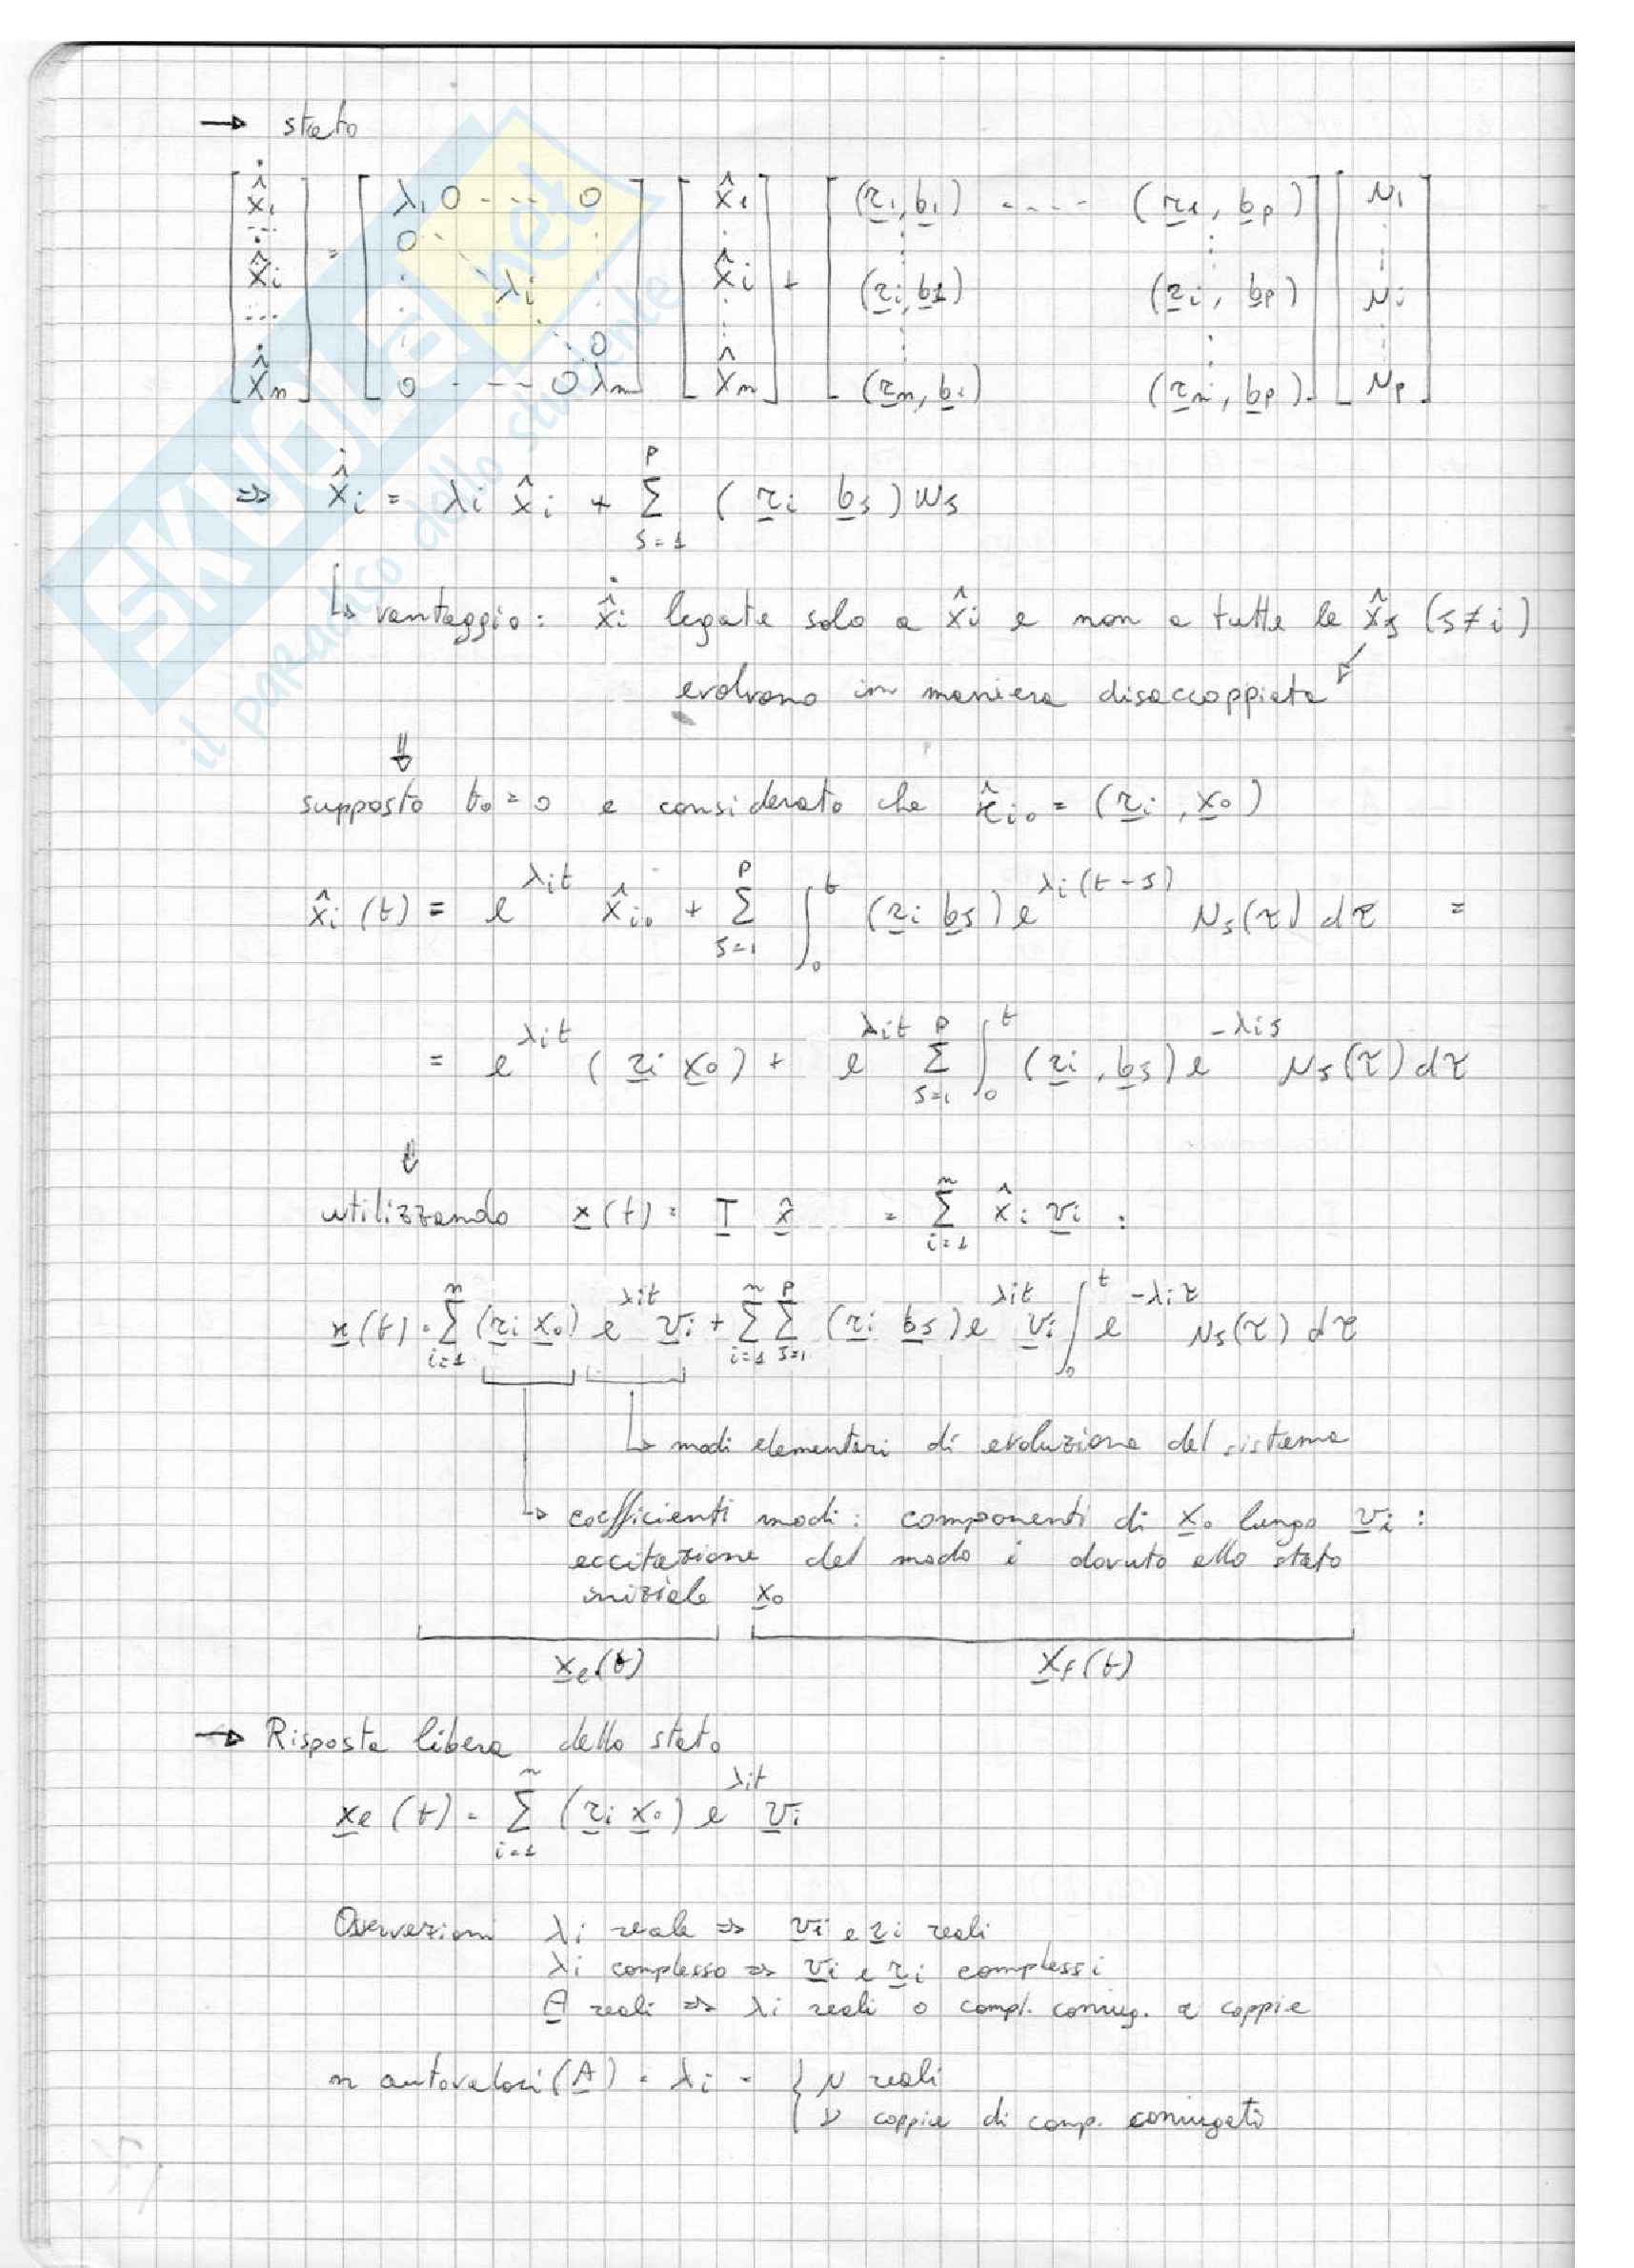 → stato
[ẋ̂₁ ... ẋ̂ᵢ ... ẋ̂ₙ] = [λ₁ 0 ---- 0 0 λᵢ 0 0 ---- 0 λₙ] [x̂₁ x̂ᵢ x̂ₙ] + [(r₁, b₁) ---- (r₁, bₚ) (rᵢ, b₁) (rᵢ, bₚ) (rₙ, b₁) (rₙ, bₚ)] [u₁ uᵢ uₚ]
⇒ ẋ̂ᵢ = λᵢ x̂ᵢ + Σ_{j=1}^{p} (rᵢ bⱼ) uⱼ
↳ vantaggio: ẋ̂ᵢ legate solo a x̂ᵢ e non a tutte le x̂ⱼ (j≠i)
evolvono in maniera disaccoppiata
⇓
supposto t₀ = 0 e considerato che x̂ᵢ₀ = (rᵢ, x₀)
x̂ᵢ(t) = e^{λᵢt} x̂ᵢ₀ + Σ_{j=1}^{p} ∫₀ᵗ (rᵢ bⱼ) e^{λᵢ(t-j)} uⱼ(τ) dτ =
= e^{λᵢt} (rᵢ x₀) + e^{λᵢt} Σ_{j=1}^{p} ∫₀ᵗ (rᵢ, bⱼ) e^{-λᵢj} uⱼ(τ) dτ
⇓
utilizzando x(t) = T x̂ = Σ_{i=1}^{n} x̂ᵢ vᵢ :
x(t) = Σ_{i=1}^{n} (rᵢ x₀) e^{λᵢt} vᵢ + Σ_{i=1}^{n} Σ_{j=1}^{p} (rᵢ bⱼ) e^{λᵢt} vᵢ ∫₀ᵗ e^{-λᵢτ} uⱼ(τ) dτ
↳ modi elementari di evoluzione del sistema
↳ coefficienti modi: componenti di x₀ lungo vᵢ :
eccitazione del modo i dovuto allo stato
iniziale x₀
xₑ(t) x_f(t)
→ Risposta libera dello stato
xₑ(t) = Σ_{i=1}^{n} (rᵢ x₀) e^{λᵢt} vᵢ
Osservazioni λᵢ reale ⇒ vᵢ e rᵢ reali
λᵢ complesso ⇒ vᵢ e rᵢ complessi
A reali ⇒ λᵢ reali o compl. coniug. a coppie
n autovalori (A) = λᵢ = { μ reali
ν coppie di comp. coniugati
SKUOLA.net
il paradiso dello studente